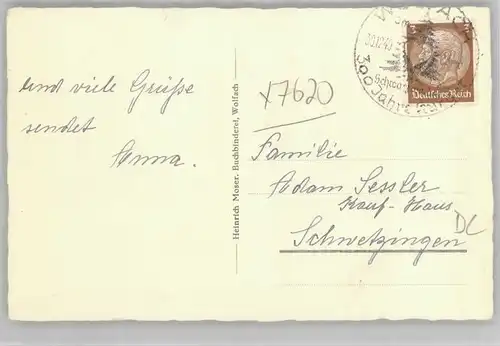 und viele Grüße
sendet
Anna.
Heinrich Moser, Buchbinderei, Wolfach
x7620
3
Deutsches Reich
300 Jahre
Familie
Adam Sessler
Kauf-Haus
Schwetzingen
DL